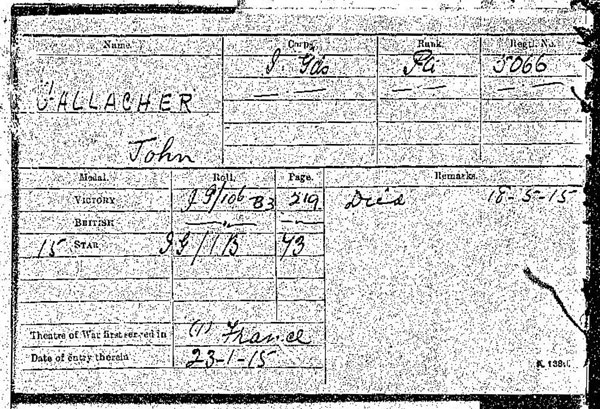 Name. Corps. Rank. Regtl. No.
I. Gds Pte 5066
GALLACHER
John
Medal. Roll. Page. Remarks.
VICTORY I G/106 B3 219 Died 18-5-15
BRITISH -"- -"-
15 STAR I G/1 B 73
Theatre of War first served in (1) France
Date of entry therein 23-1-15
K. 1380.